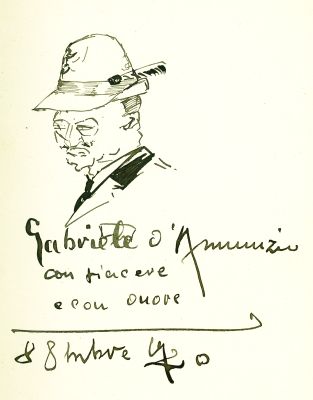 Gabriele d'Annunzio
con piacere
e con onore
8 8mbre 1920